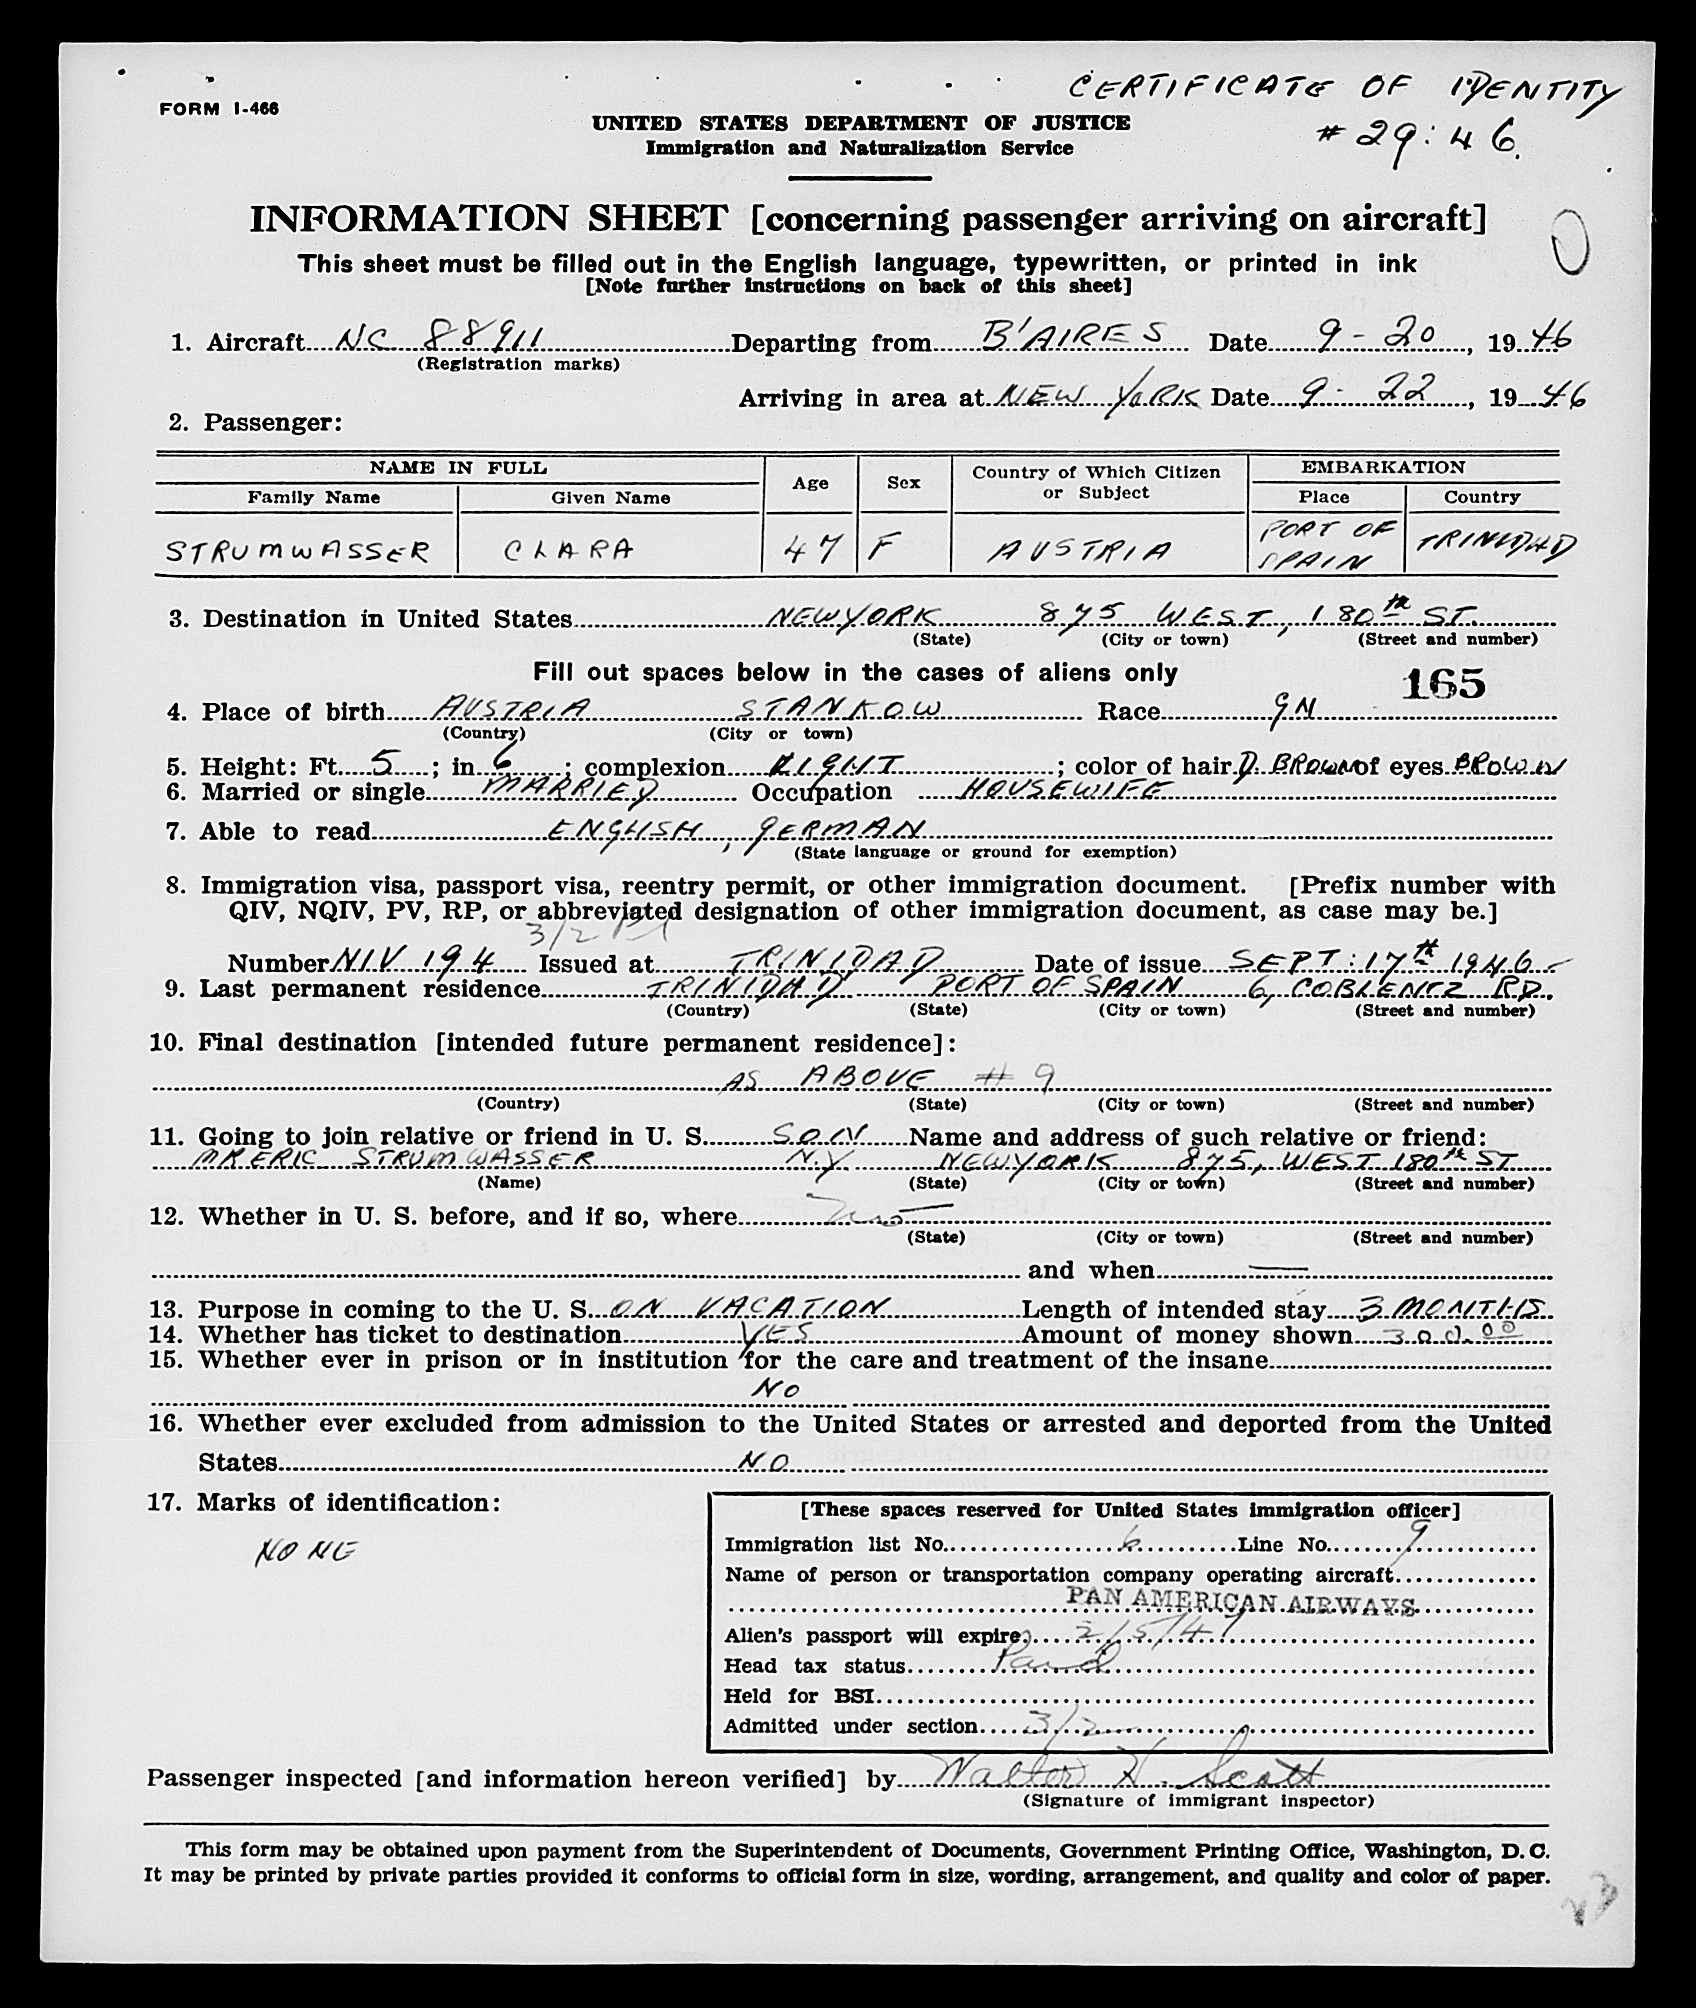 CERTIFICATE OF IDENTITY
# 29:46.
FORM I-466
UNITED STATES DEPARTMENT OF JUSTICE
Immigration and Naturalization Service
INFORMATION SHEET [concerning passenger arriving on aircraft]
This sheet must be filled out in the English language, typewritten, or printed in ink
[Note further instructions on back of this sheet]
1. Aircraft NC 88911 Departing from B'AIRES Date 9-20, 1946
(Registration marks)
Arriving in area at NEW YORK Date 9-22, 1946
2. Passenger:
NAME IN FULL Age Sex Country of Which Citizen or Subject EMBARKATION
Family Name Given Name Place Country
STRUMWASSER CLARA 47 F AUSTRIA PORT OF SPAIN TRINIDAD
3. Destination in United States NEWYORK 875 WEST, 180th ST.
(State) (City or town) (Street and number)
Fill out spaces below in the cases of aliens only
165
4. Place of birth AUSTRIA STANKOW Race GM
(Country) (City or town)
5. Height: Ft. 5; in. 6; complexion LIGHT; color of hair D. BROWN of eyes BROWN
6. Married or single MARRIED Occupation HOUSEWIFE
7. Able to read ENGLISH, GERMAN
(State language or ground for exemption)
8. Immigration visa, passport visa, reentry permit, or other immigration document. [Prefix number with
QIV, NQIV, PV, RP, or abbreviated designation of other immigration document, as case may be.]
3/2
Number NIV 194 Issued at TRINIDAD Date of issue SEPT: 17th 1946
9. Last permanent residence TRINIDAD PORT OF SPAIN 6, COBLENTZ RD.
(Country) (State) (City or town) (Street and number)
10. Final destination [intended future permanent residence]:
AS ABOVE # 9
(Country) (State) (City or town) (Street and number)
11. Going to join relative or friend in U. S. SON Name and address of such relative or friend:
MR ERIC STRUMWASSER N.Y. NEWYORK 875, WEST 180th ST
(Name) (State) (City or town) (Street and number)
12. Whether in U. S. before, and if so, where
(State) (City or town) (Street and number)
and when —
13. Purpose in coming to the U. S. ON VACATION Length of intended stay 3 MONTHS
14. Whether has ticket to destination YES Amount of money shown 300.00
15. Whether ever in prison or in institution for the care and treatment of the insane
NO
16. Whether ever excluded from admission to the United States or arrested and deported from the United
States NO
17. Marks of identification:
NONE
[These spaces reserved for United States immigration officer]
Immigration list No. 6 Line No. 9
Name of person or transportation company operating aircraft
PAN AMERICAN AIRWAYS
Alien's passport will expire 2/5/47
Head tax status Paid
Held for BSI
Admitted under section 3/2
Passenger inspected [and information hereon verified] by Walter H. Scott
(Signature of immigrant inspector)
This form may be obtained upon payment from the Superintendent of Documents, Government Printing Office, Washington, D. C.
It may be printed by private parties provided it conforms to official form in size, wording, arrangement, and quality and color of paper.